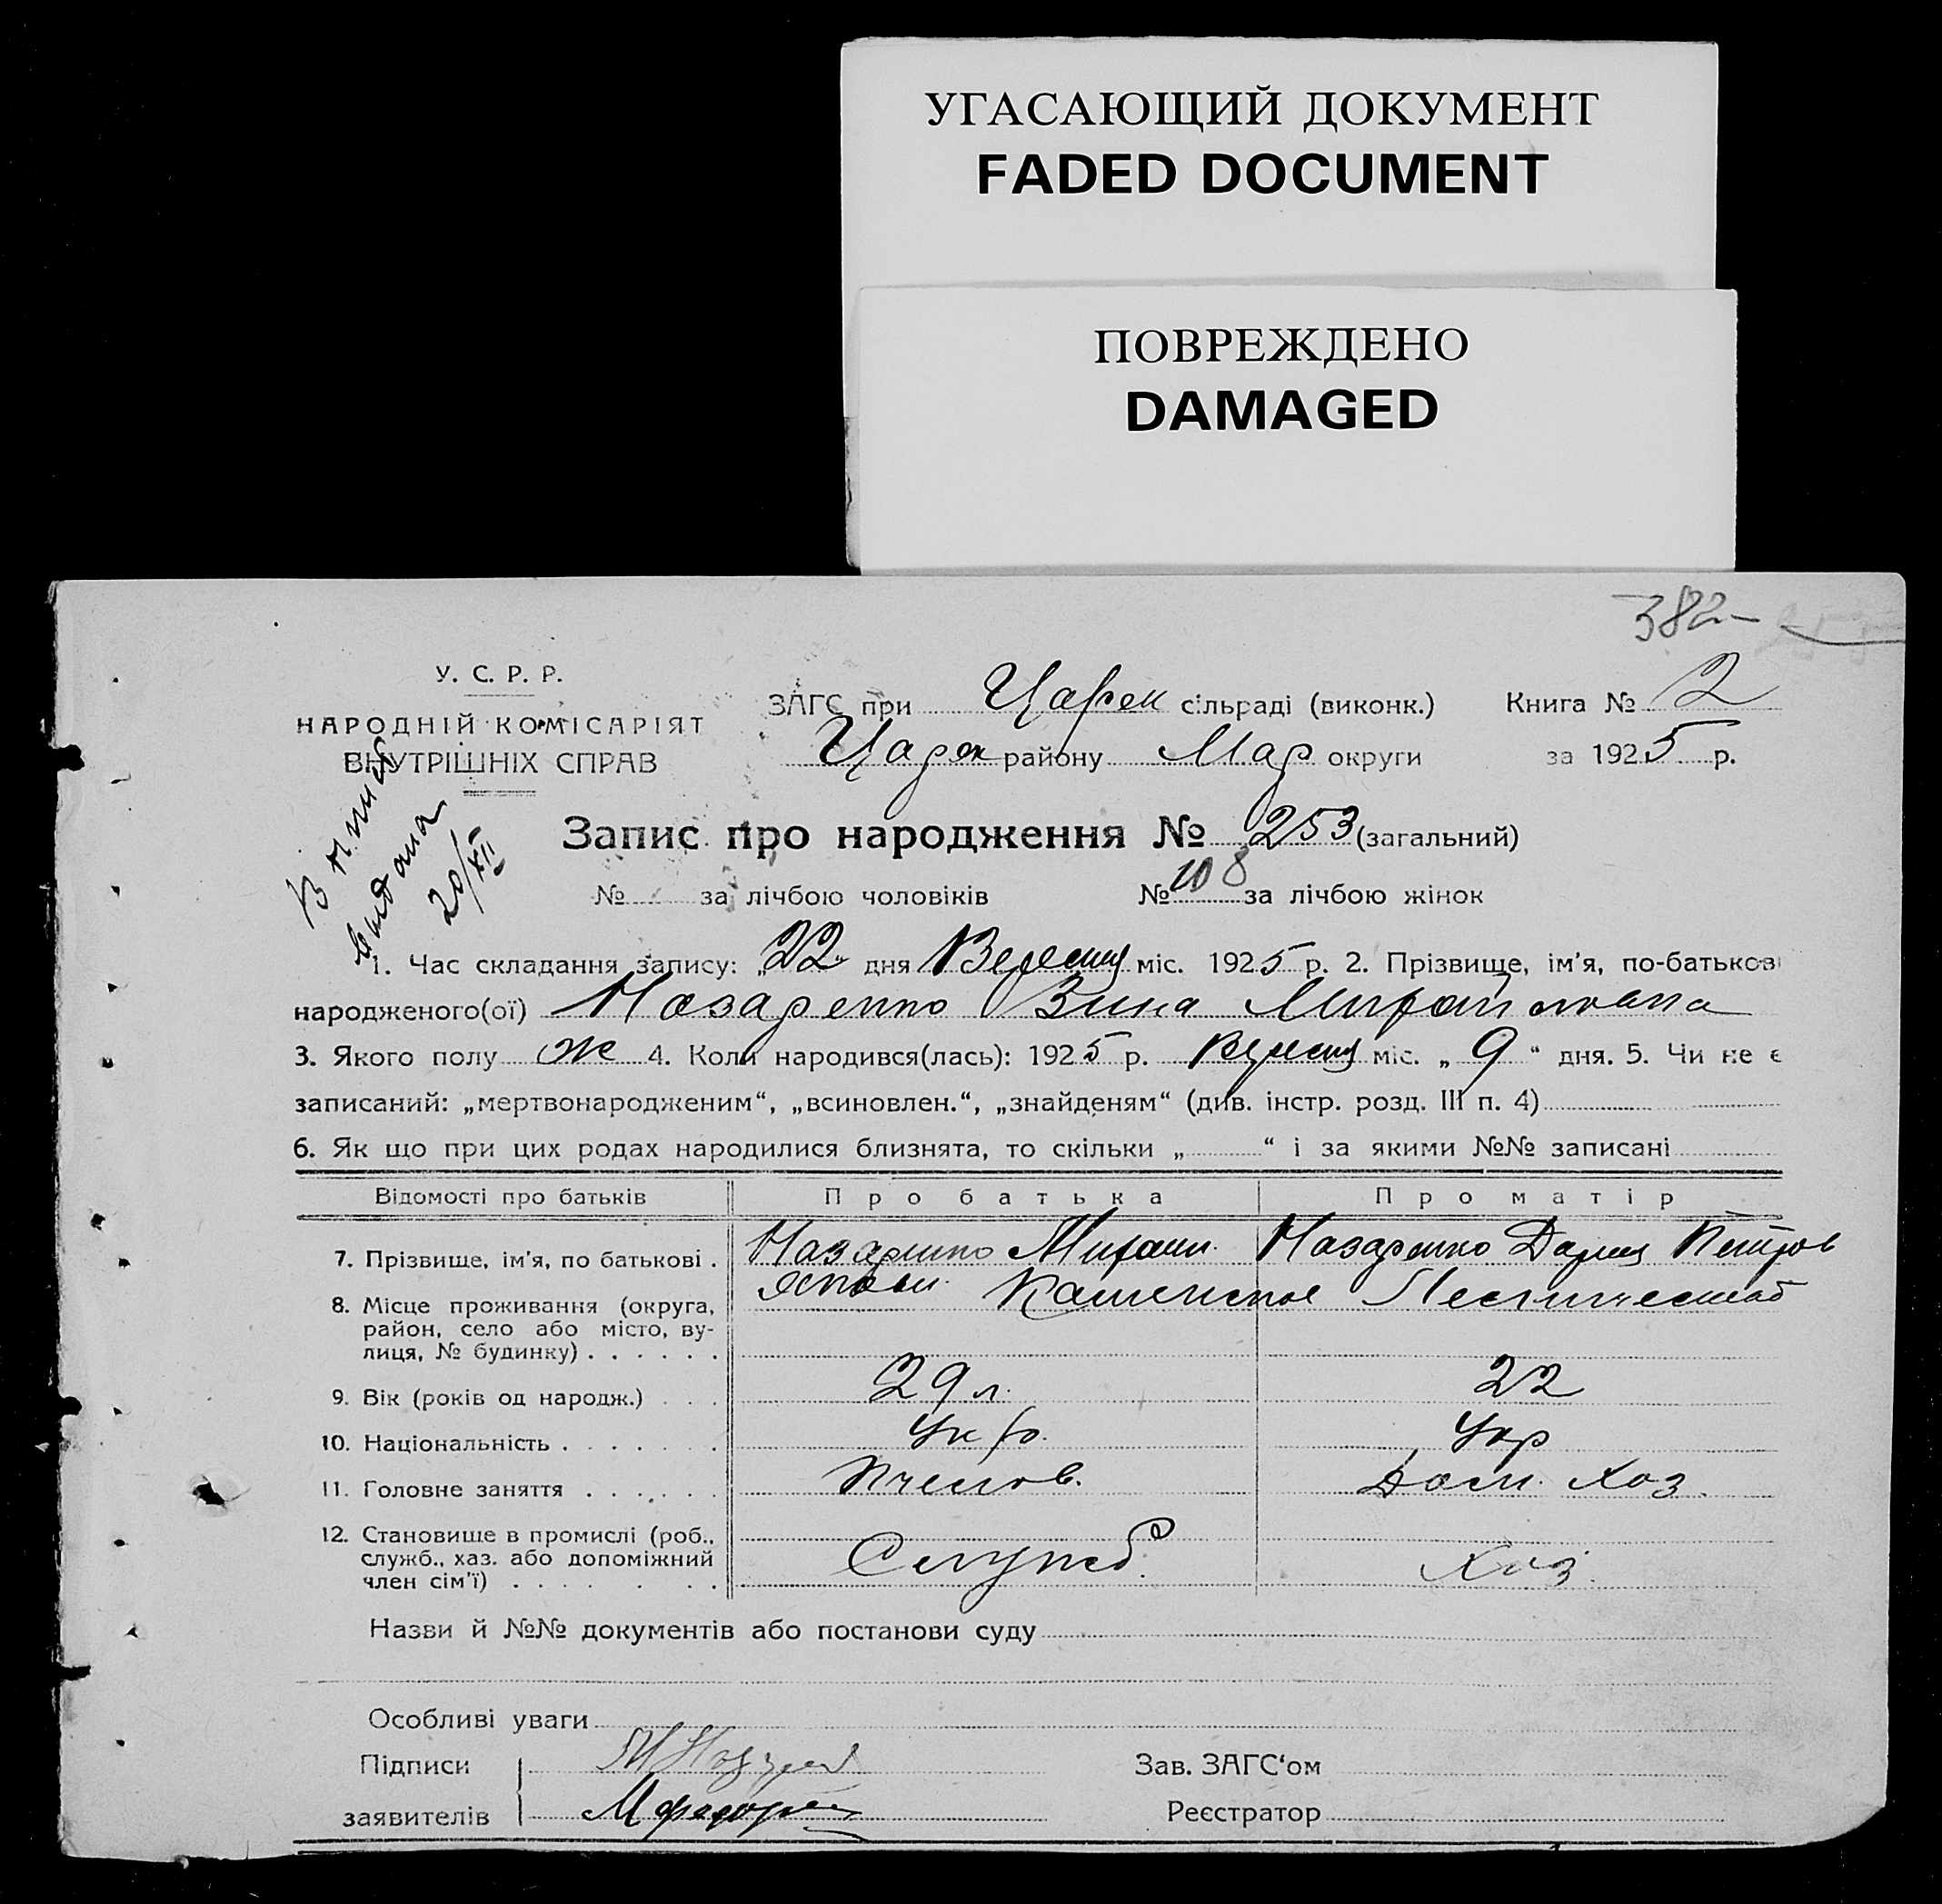 УГАСАЮЩИЙ ДОКУМЕНТ
FADED DOCUMENT
ПОВРЕЖДЕНО
DAMAGED
382
У. С. Р. Р.
НАРОДНІЙ КОМІСАРІЯТ
ВНУТРІШНІХ СПРАВ
ЗАГС при Царек сільраді (виконк.) Книга № 2
Царек району Мар округи за 1925 р.
видана
20/XII
Запис про народження № 253 (загальний)
№ за лічбою чоловіків № 108 за лічбою жінок
1. Час складання запису: „22 дня Вересня міс. 1925 р. 2. Прізвище, ім'я, по-батькові
народженого(ої) Назаренко Зина Михайловна
3. Якого полу ж 4. Коли народився(лась): 1925 р. Вересня міс. „ 9 “ дня. 5. Чи не є
записаний: „мертвонародженим“, „всиновлен.“, „знайденям“ (див. інстр. розд. III п. 4)
6. Як що при цих родах народилися близнята, то скільки „ “ і за якими №№ записані
Відомості про батьків Про батька Про матір
7. Прізвище, ім'я, по батькові . Назаренко Михаил. Назаренко Дария Петров
8. Місце проживання (округа, район, село або місто, ву-лиця, № будинку) . . . . . . Каменское Лесничество
9. Вік (років од народж.) . . . 29 л. 22
10. Національність . . . . . . . Укр. Укр
11. Головне заняття . . . . . . Пчелов. Дом. Хоз.
12. Становище в промислі (роб., служб., хаз. або допоміжний член сім'ї) . . . . . . . Служб. Хоз.
Назви й №№ документів або постанови суду
Особливі уваги
Підписи Зав. ЗАГС‘ом
заявителів Реєстратор